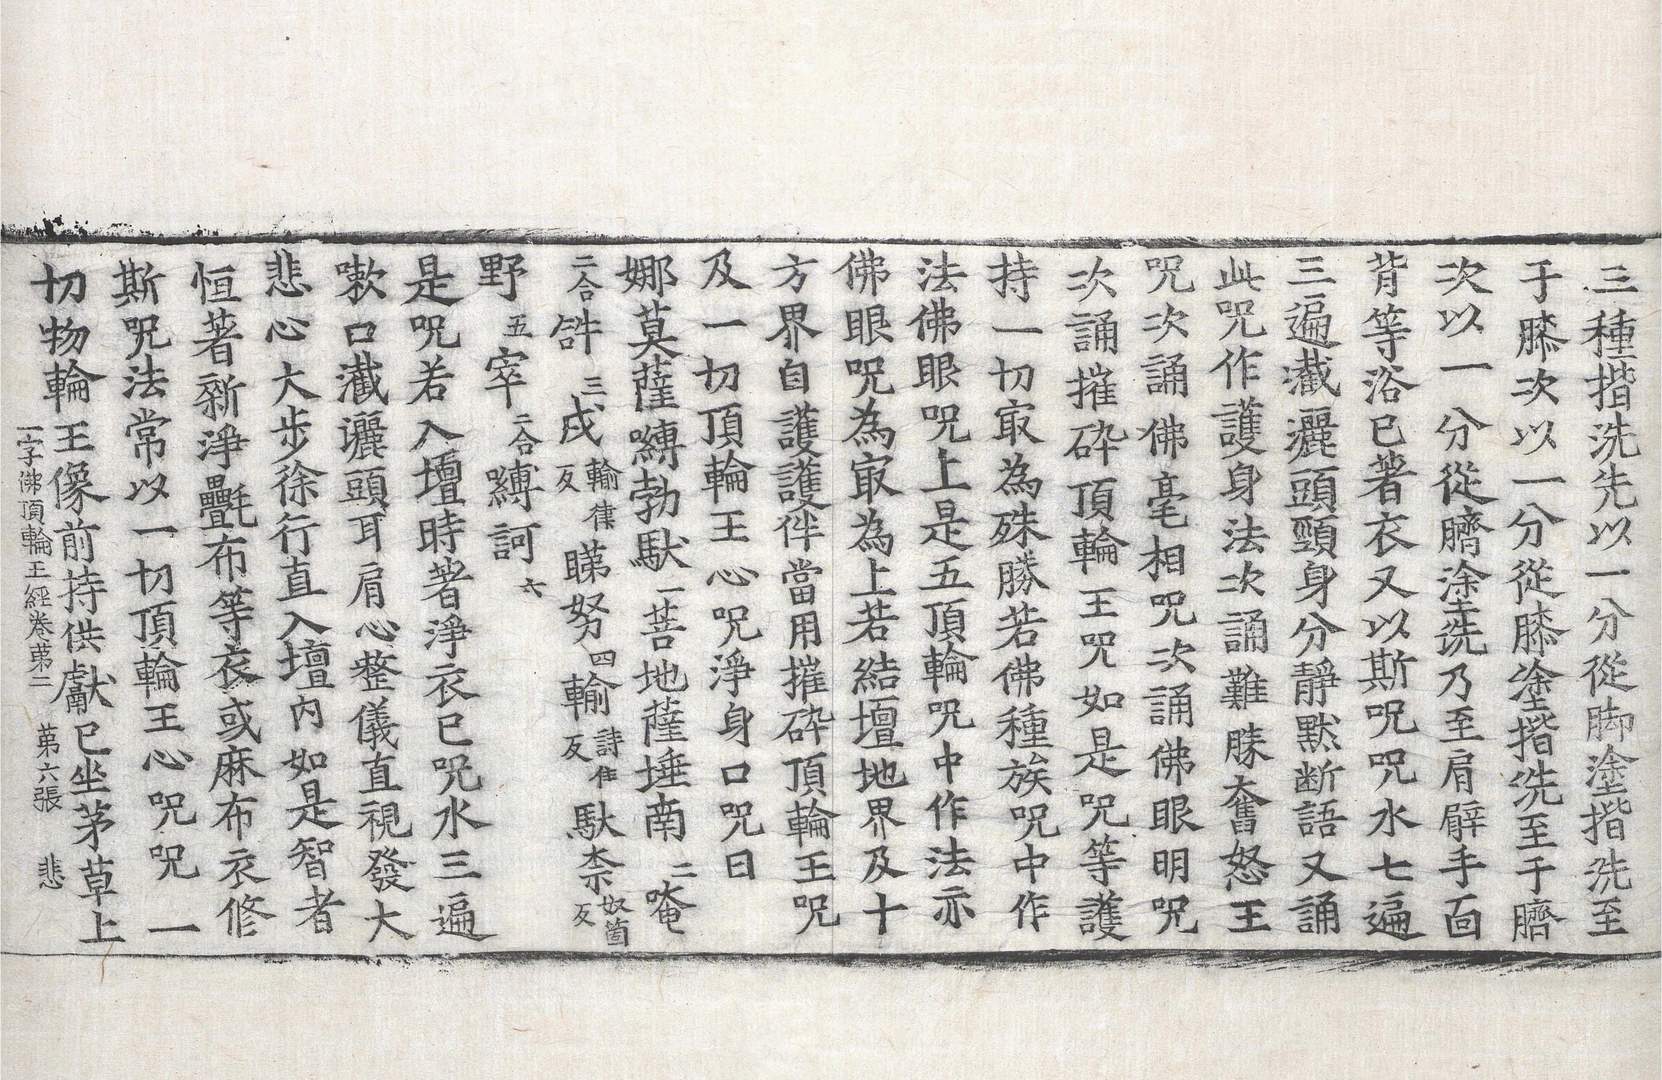 三種揩洗先以一分從脚塗揩洗至
于膝次以一分從膝塗揩洗至于臍
次以一分從臍塗洗乃至肩臂手面
背等浴已著衣又以斯呪呪水七遍
三遍灑灑頭頸身分靜默断語又誦
此呪作護身法次誦難勝奮怒王
呪次誦佛毫相呪次誦佛眼明呪
次誦摧砕頂輪王呪如是呪等護
持一切㝡為殊勝若佛種族呪中作
法佛眼呪上是五頂輪呪中作法亦
佛眼呪為㝡為上若結壇地界及十
方界自護護伴當用摧砕頂輪王呪
及一切頂輪王心呪淨身口呪曰
娜莫薩嚩勃馱一菩地薩埵南二唵
二合𤙖三戍輸律反睇努四輸詩作反馱柰奴箇反
野五宰二合嚩訶六
是呪若入壇時著淨衣已呪水三遍
嗽口灑灑頭耳肩心整儀直視發大
悲心大步徐行直入壇內如是智者
恒著新淨㲲布等衣或麻布衣修
斯呪法常以一切頂輪王心呪呪一
切物輪王像前持供獻已坐茅草上
一字佛頂輪王經卷苐二 苐六張 悲